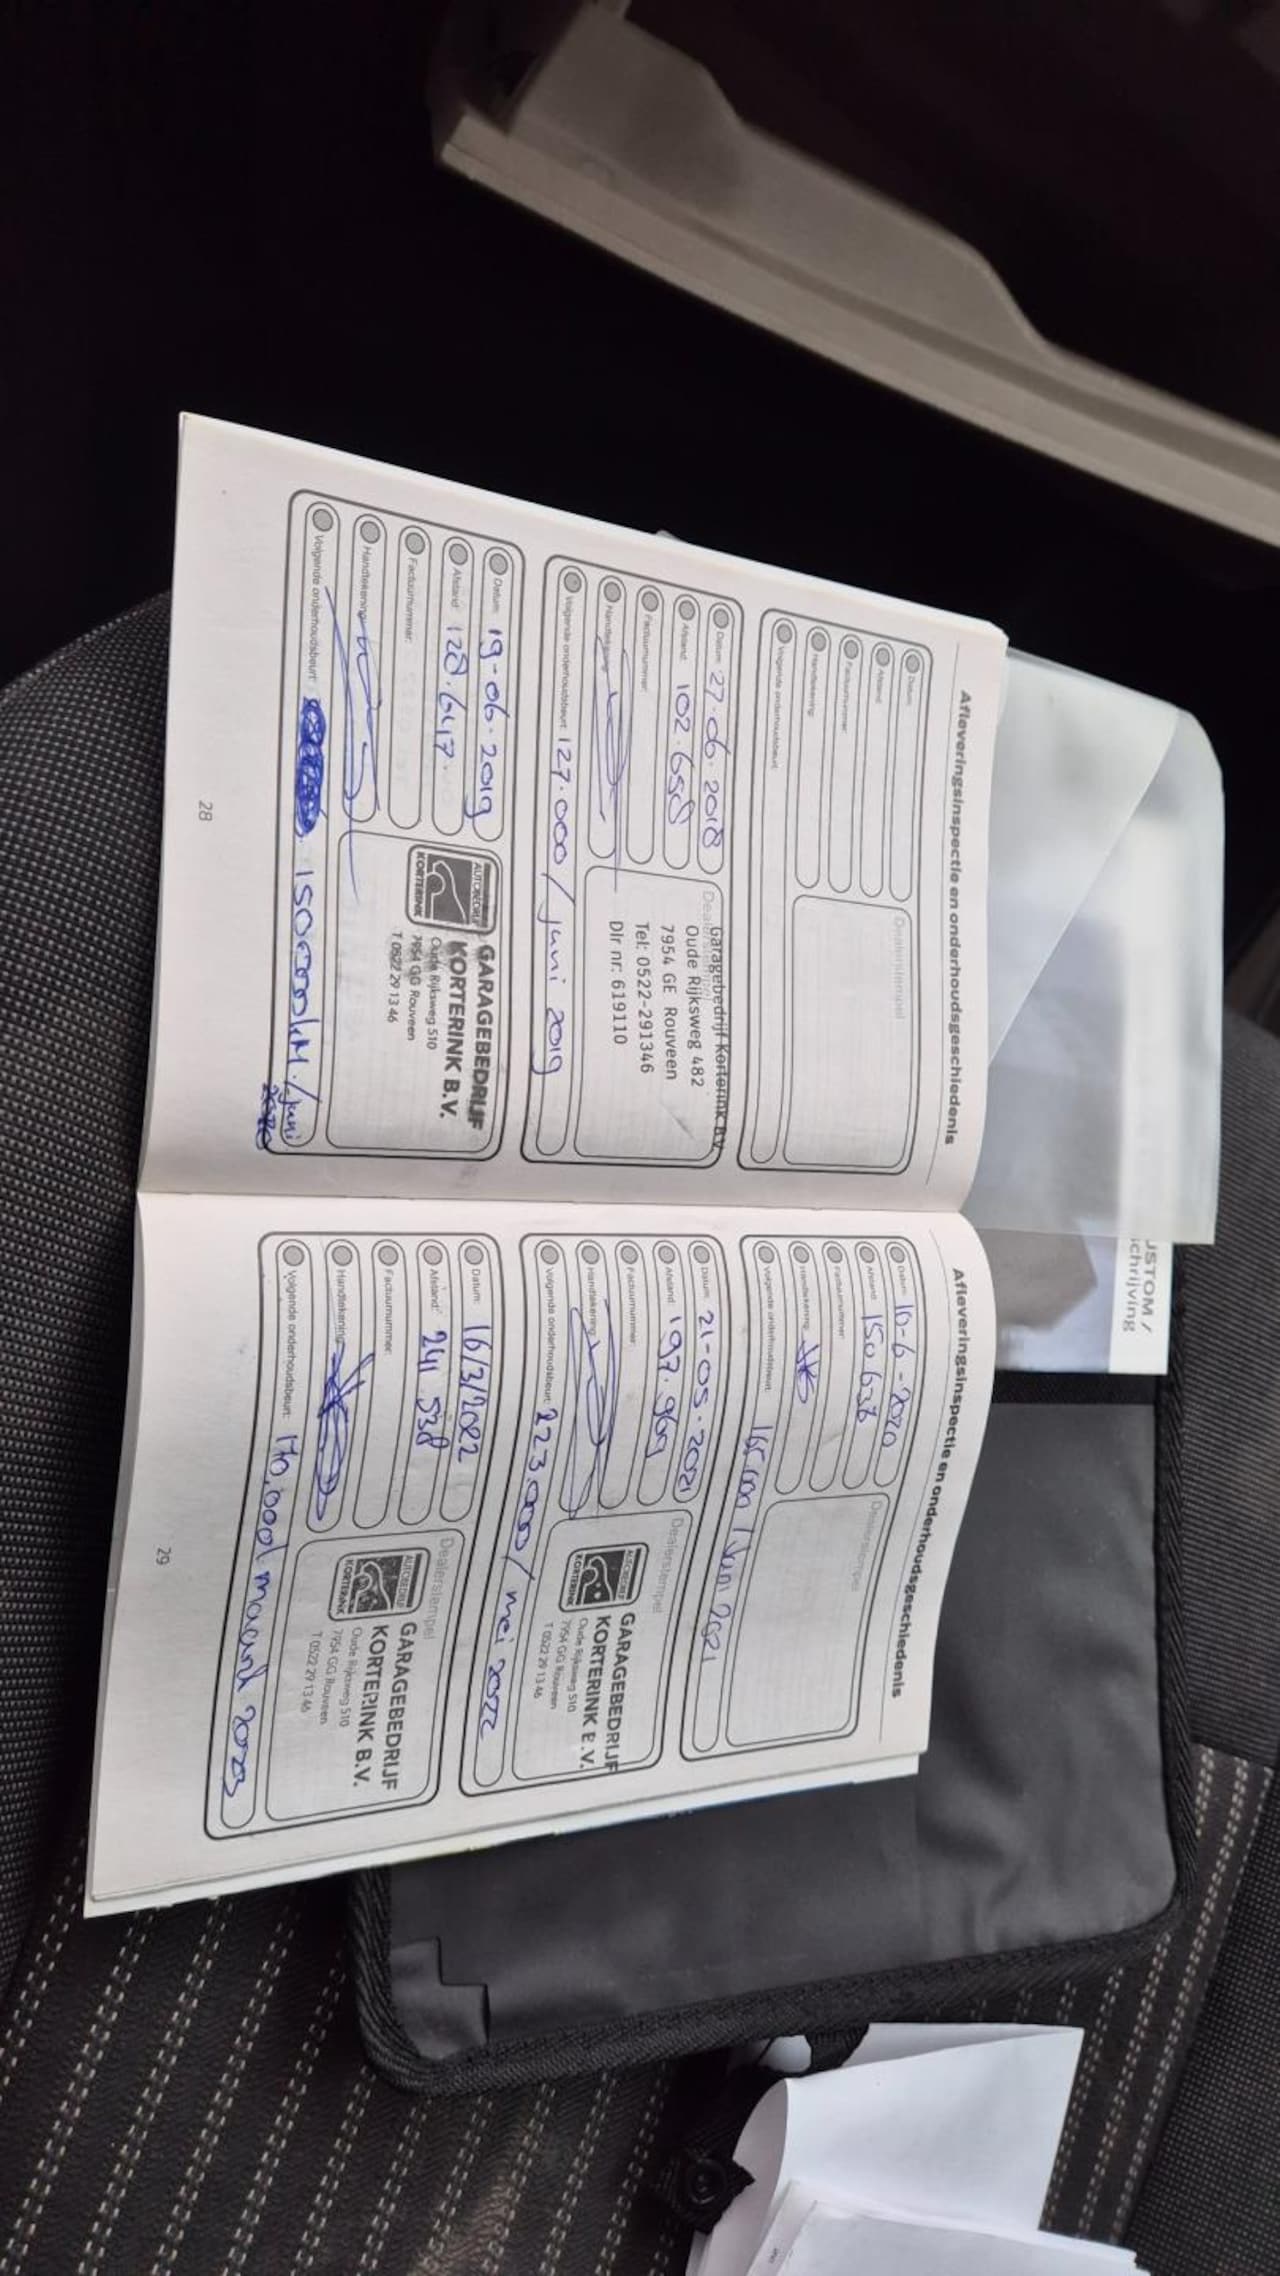 Afleveringsinspectie en onderhoudsgeschiedenis
Datum:
Afstand:
Factuurnummer:
Handtekening:
Volgende onderhoudsbeurt:
Dealerstempel
Datum: 27.06.2018
Afstand: 102.658
Factuurnummer:
Handtekening:
Volgende onderhoudsbeurt: 127.000/juni 2019
Dealerstempel
Garagebedrijf Korterink B.V.
Oude Rijksweg 482
7954 GE Rouveen
Tel: 0522-291346
Dlr nr: 619110
Datum: 19-06-2019
Afstand: 128.647
Factuurnummer:
Handtekening:
Volgende onderhoudsbeurt: 150000kM./juni
2020
AUTOBEDRIJF
KORTERINK
GARAGEBEDRIJF
KORTERINK B.V.
Oude Rijksweg 510
7954 GG Rouveen
T 0522 29 13 46
28
Afleveringsinspectie en onderhoudsgeschiedenis
Datum: 10-6-2020
Afstand: 150638
Factuurnummer:
Handtekening:
Volgende onderhoudsbeurt: / Juni 2021
Dealerstempel
Datum: 21-05-2021
Afstand: 197.969
Factuurnummer:
Handtekening:
Volgende onderhoudsbeurt: 223.000/ mei 2022
Dealerstempel
AUTOBEDRIJF
KORTERINK
GARAGEBEDRIJF
KORTERINK B.V.
Oude Rijksweg 510
7954 GG Rouveen
T 0522 29 13 46
Datum: 16/3/2022
Afstand: 241 538
Factuurnummer:
Handtekening:
Volgende onderhoudsbeurt: 170,000/ maart 2023
Dealerstempel
AUTOBEDRIJF
KORTERINK
GARAGEBEDRIJF
KORTERINK B.V.
Oude Rijksweg 510
7954 GG Rouveen
T 0522 29 13 46
29
USTOM /
chrijving